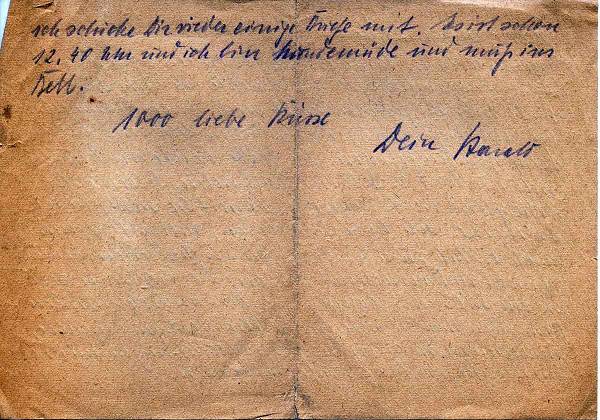 ich schicke Dir wieder einige Briefe mit. Es ist schon
12.40 Uhr und ich bin hundemüde und muß ins
Bett.
1000 liebe Küsse
Dein Harald